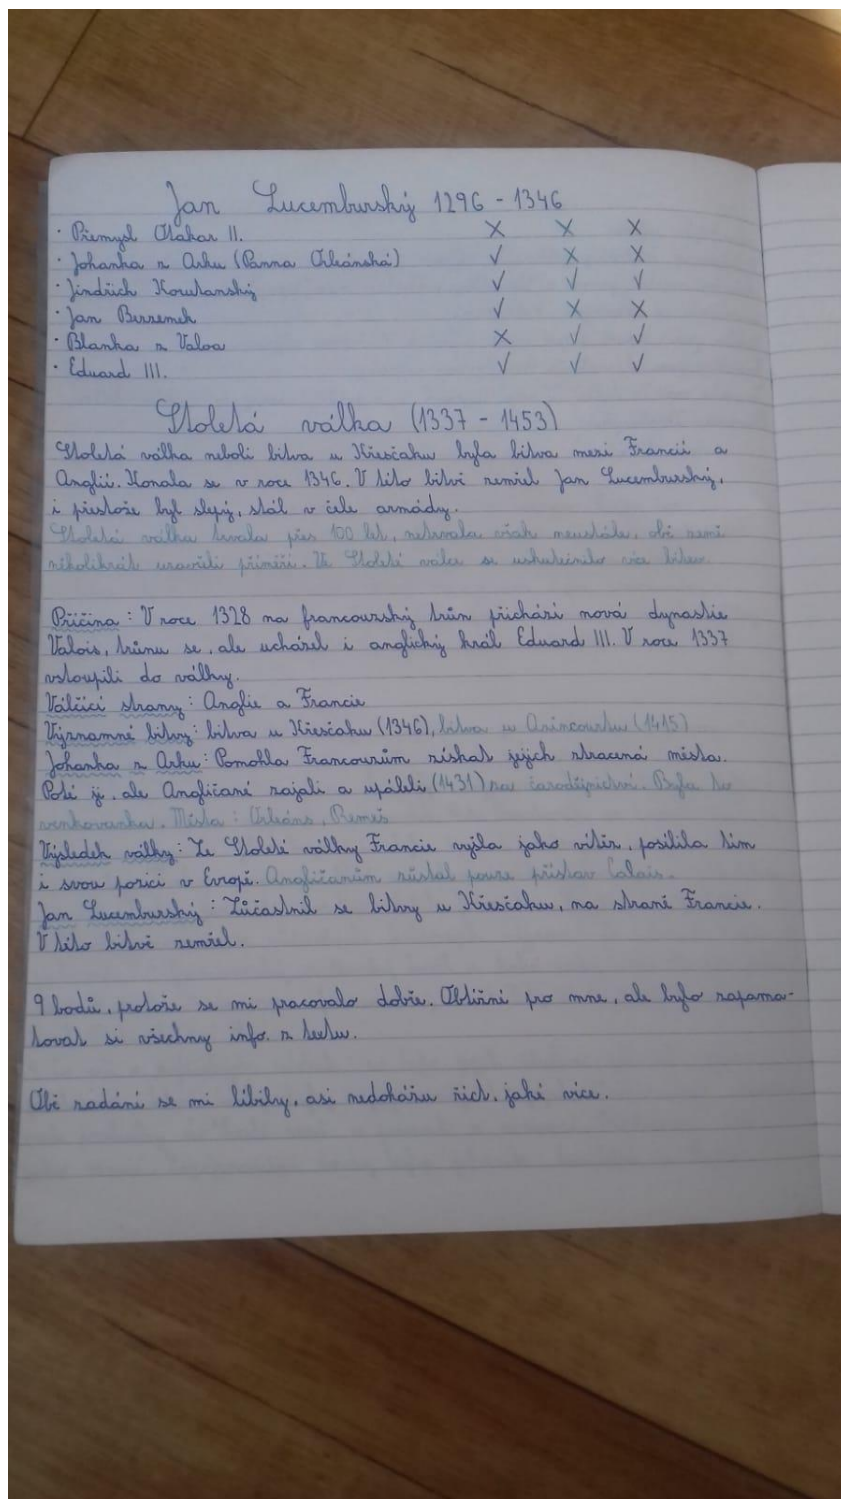 Jan Lucemburský 1296 - 1346
· Přemysl Otakar II. X X X
· Johanka z Arku (Panna Orleánská) ✓ X X
· Jindřich Korutanský ✓ ✓ ✓
· Jan Bezzemek ✓ X X
· Blanka z Valoa X ✓ ✓
· Eduard III. ✓ ✓ ✓
Stoletá válka (1337 - 1453)
Stoletá válka neboli bitva u Kresčaku byla bitva mezi Francií a
Anglií. Konala se v roce 1346. V této bitvě zemřel Jan Lucemburský,
i přestože byl slepý, stál v čele armády.
Stoletá válka trvala přes 100 let, netrvala však neustále, obě země
několikrát uzavřeli příměří. Ve Stoleté válce se uskutečnilo více bitev.
Příčina: V roce 1328 na francouzský trůn přichází nová dynastie
Valois, trůnu se, ale ucházel i anglický král Eduard III. V roce 1337
vstoupili do války.
Válčící strany: Anglie a Francie
Významné bitvy: bitva u Kresčaku (1346), bitva u Azincourtu (1415)
Johanka z Arku: Pomohla Francouzům získat jejich ztracená města.
Poté ji, ale Angličané zajali a upálili (1431) za čarodějnictví. Byla to
venkovanka. Města: Orleáns, Remeš
Výsledek války: Ze Stoleté války Francie vyšla jako vítěz, posílila tím
i svou pozici v Evropě. Angličanům zůstal pouze přístav Calais.
Jan Lucemburský: Zúčastnil se bitvy u Kresčaku, na straně Francie.
V této bitvě zemřel.
9 bodů, protože se mi pracovalo dobře. Obtížné pro mne, ale bylo zapama-
tovat si všechny info. z textu.
Obě zadání se mi líbily, asi nedokážu říct, jaké více.